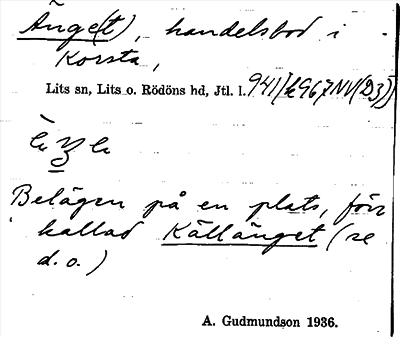 Änge(t), handelsbod i
Korsta,
Lits sn, Lits o. Rödöns hd, Jtl. l. 941[k967NV(D3)]
Belägen på en plats, förr
kallad Källänget (se
d. o.)
A. Gudmundson 1936.